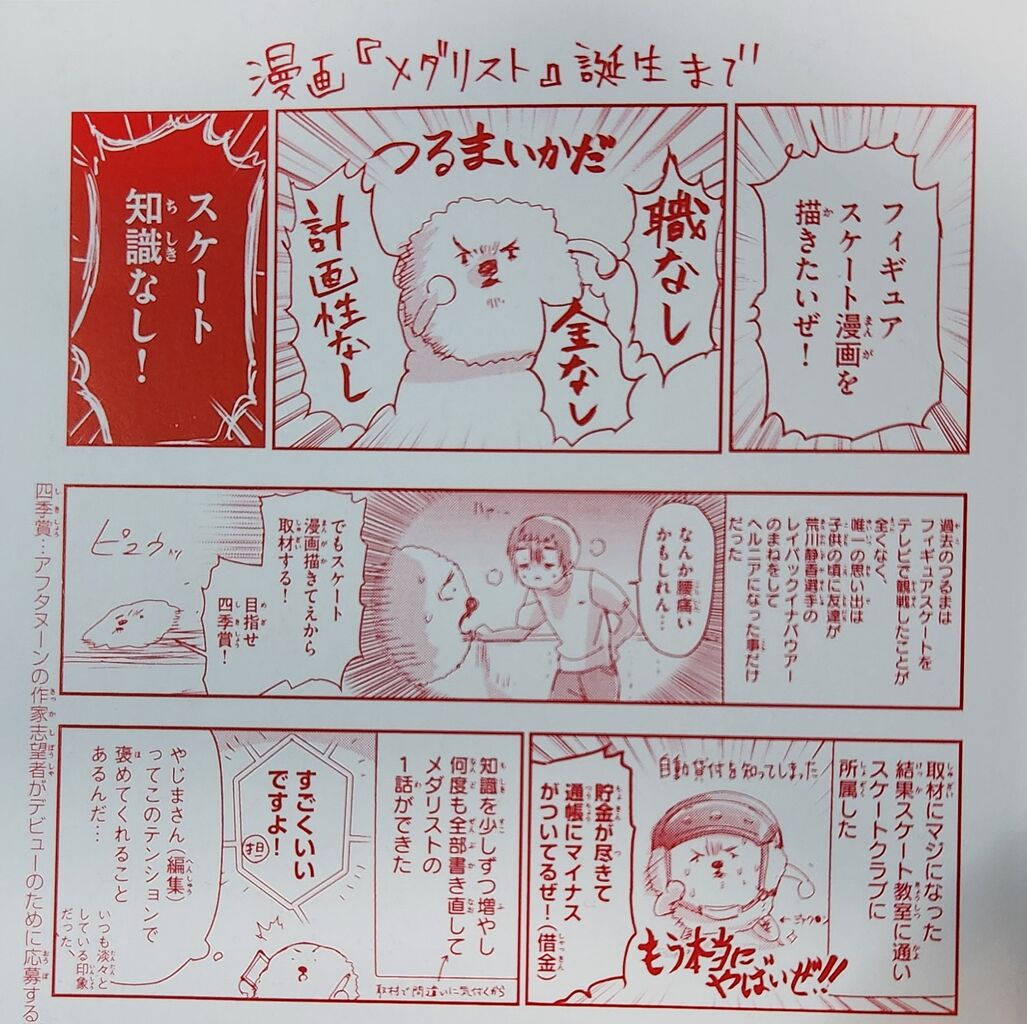 漫画『メダリスト』誕生まで
フィギュア
スケート漫画を
描きたいぜ！
つるまいかだ
職なし
金なし
計画性なし
スケート
知識なし！
過去のつるまは
フィギュアスケートを
テレビで観戦したことが
全くなく、
唯一の思い出は
子供の頃に友達が
荒川静香選手の
レイバックイナバウアー
のまねをして
ヘルニアになった事だけ
だった
なんか腰痛い
かもしれん…
でもスケート
漫画描きてえから
取材する！
目指せ
四季賞！
ピュウッ
四季賞…アフタヌーンの作家志望者がデビューのために応募する
取材にマジになった
結果スケート教室に通い
スケートクラブに
所属した
自動貸付を知ってしまった
貯金が尽きて
通帳にマイナス
がついてるぜ！（借金）
もう本当に
やばいぜ!!!
知識を少しずつ増やし
何度も全部書き直して
メダリストの
1話ができた
取材で間違いに気付くから
すごくいい
ですよ！
担
やじまさん（編集）
ってこのテンションで
褒めてくれること
あるんだ…
いつも淡々と
している印象
だった、